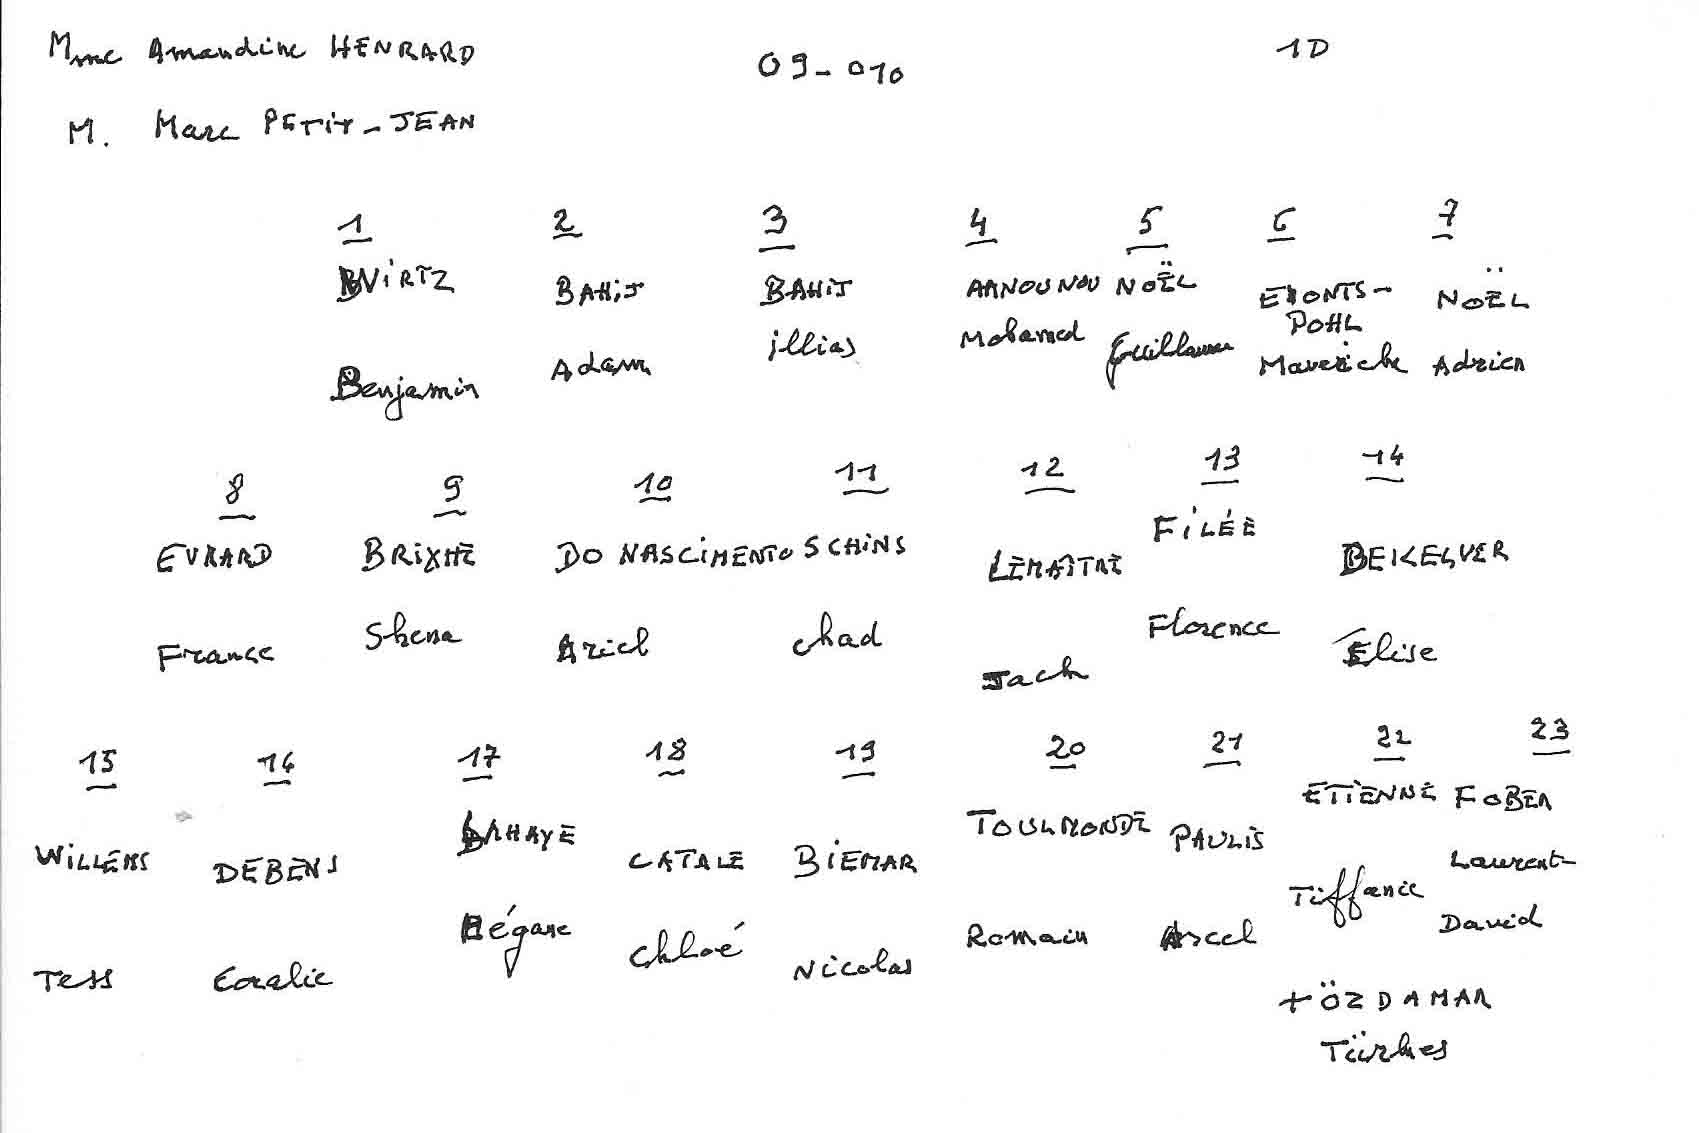 Mme Amandine HENRARD 09-010 1D
M. Marc PETIT-JEAN
1 2 3 4 5 6 7
WIRTZ BAHIJ BAHIJ AANOUNOU NOËL EMONTS- NOËL
POHL
Benjamin Adam illias Mohamed Guillaume Maverick Adrien
8 9 10 11 12 13 14
EVRARD BRIXHE DO NASCIMENTO SCHINS LEMAÎTRE FILÉE
France Shena Ariel Chad Jack Florence Élise
15 16 17 18 19 20 21 22 23
WILLEMS DEBENS LAHAYE CATALE BIEMAR TOULMONDE PAULIS ETIENNE FOBER
Tess Coralie Mégane Chloé Nicolas Romain Tiffanie Laurent-
David
+ ÖZDAMAR
Türkes